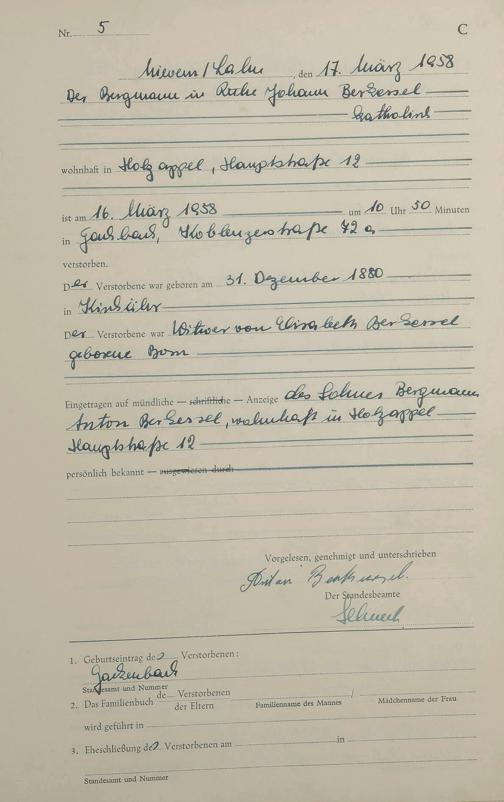 Nr. 5 C
Nievern/Lahn, den 17. März 1958
Der Bergmann in Ruhe Johann Berkessel
katholisch
wohnhaft in Holzappel, Hauptstraße 12
ist am 16. März 1958 um 10 Uhr 50 Minuten
in Koblenzerstraße 42 a
verstorben.
Der Verstorbene war geboren am 31. Dezember 1880
in
Der Verstorbene war Witwer von Elisabeth Berkessel
geborene Born
Eingetragen auf mündliche — schriftliche — Anzeige des Sohnes Bergmann
Anton Berkessel, wohnhaft in Holzappel
Hauptstraße 12
persönlich bekannt — ausgewiesen durch
Vorgelesen, genehmigt und unterschrieben
Anton Berkessel.
Der Standesbeamte
1. Geburtseintrag des Verstorbenen:
Gackenbach
Standesamt und Nummer
2. Das Familienbuch de Verstorbenen / 
der Eltern Familienname des Mannes Mädchenname der Frau
wird geführt in
3. Eheschließung des Verstorbenen am in
Standesamt und Nummer